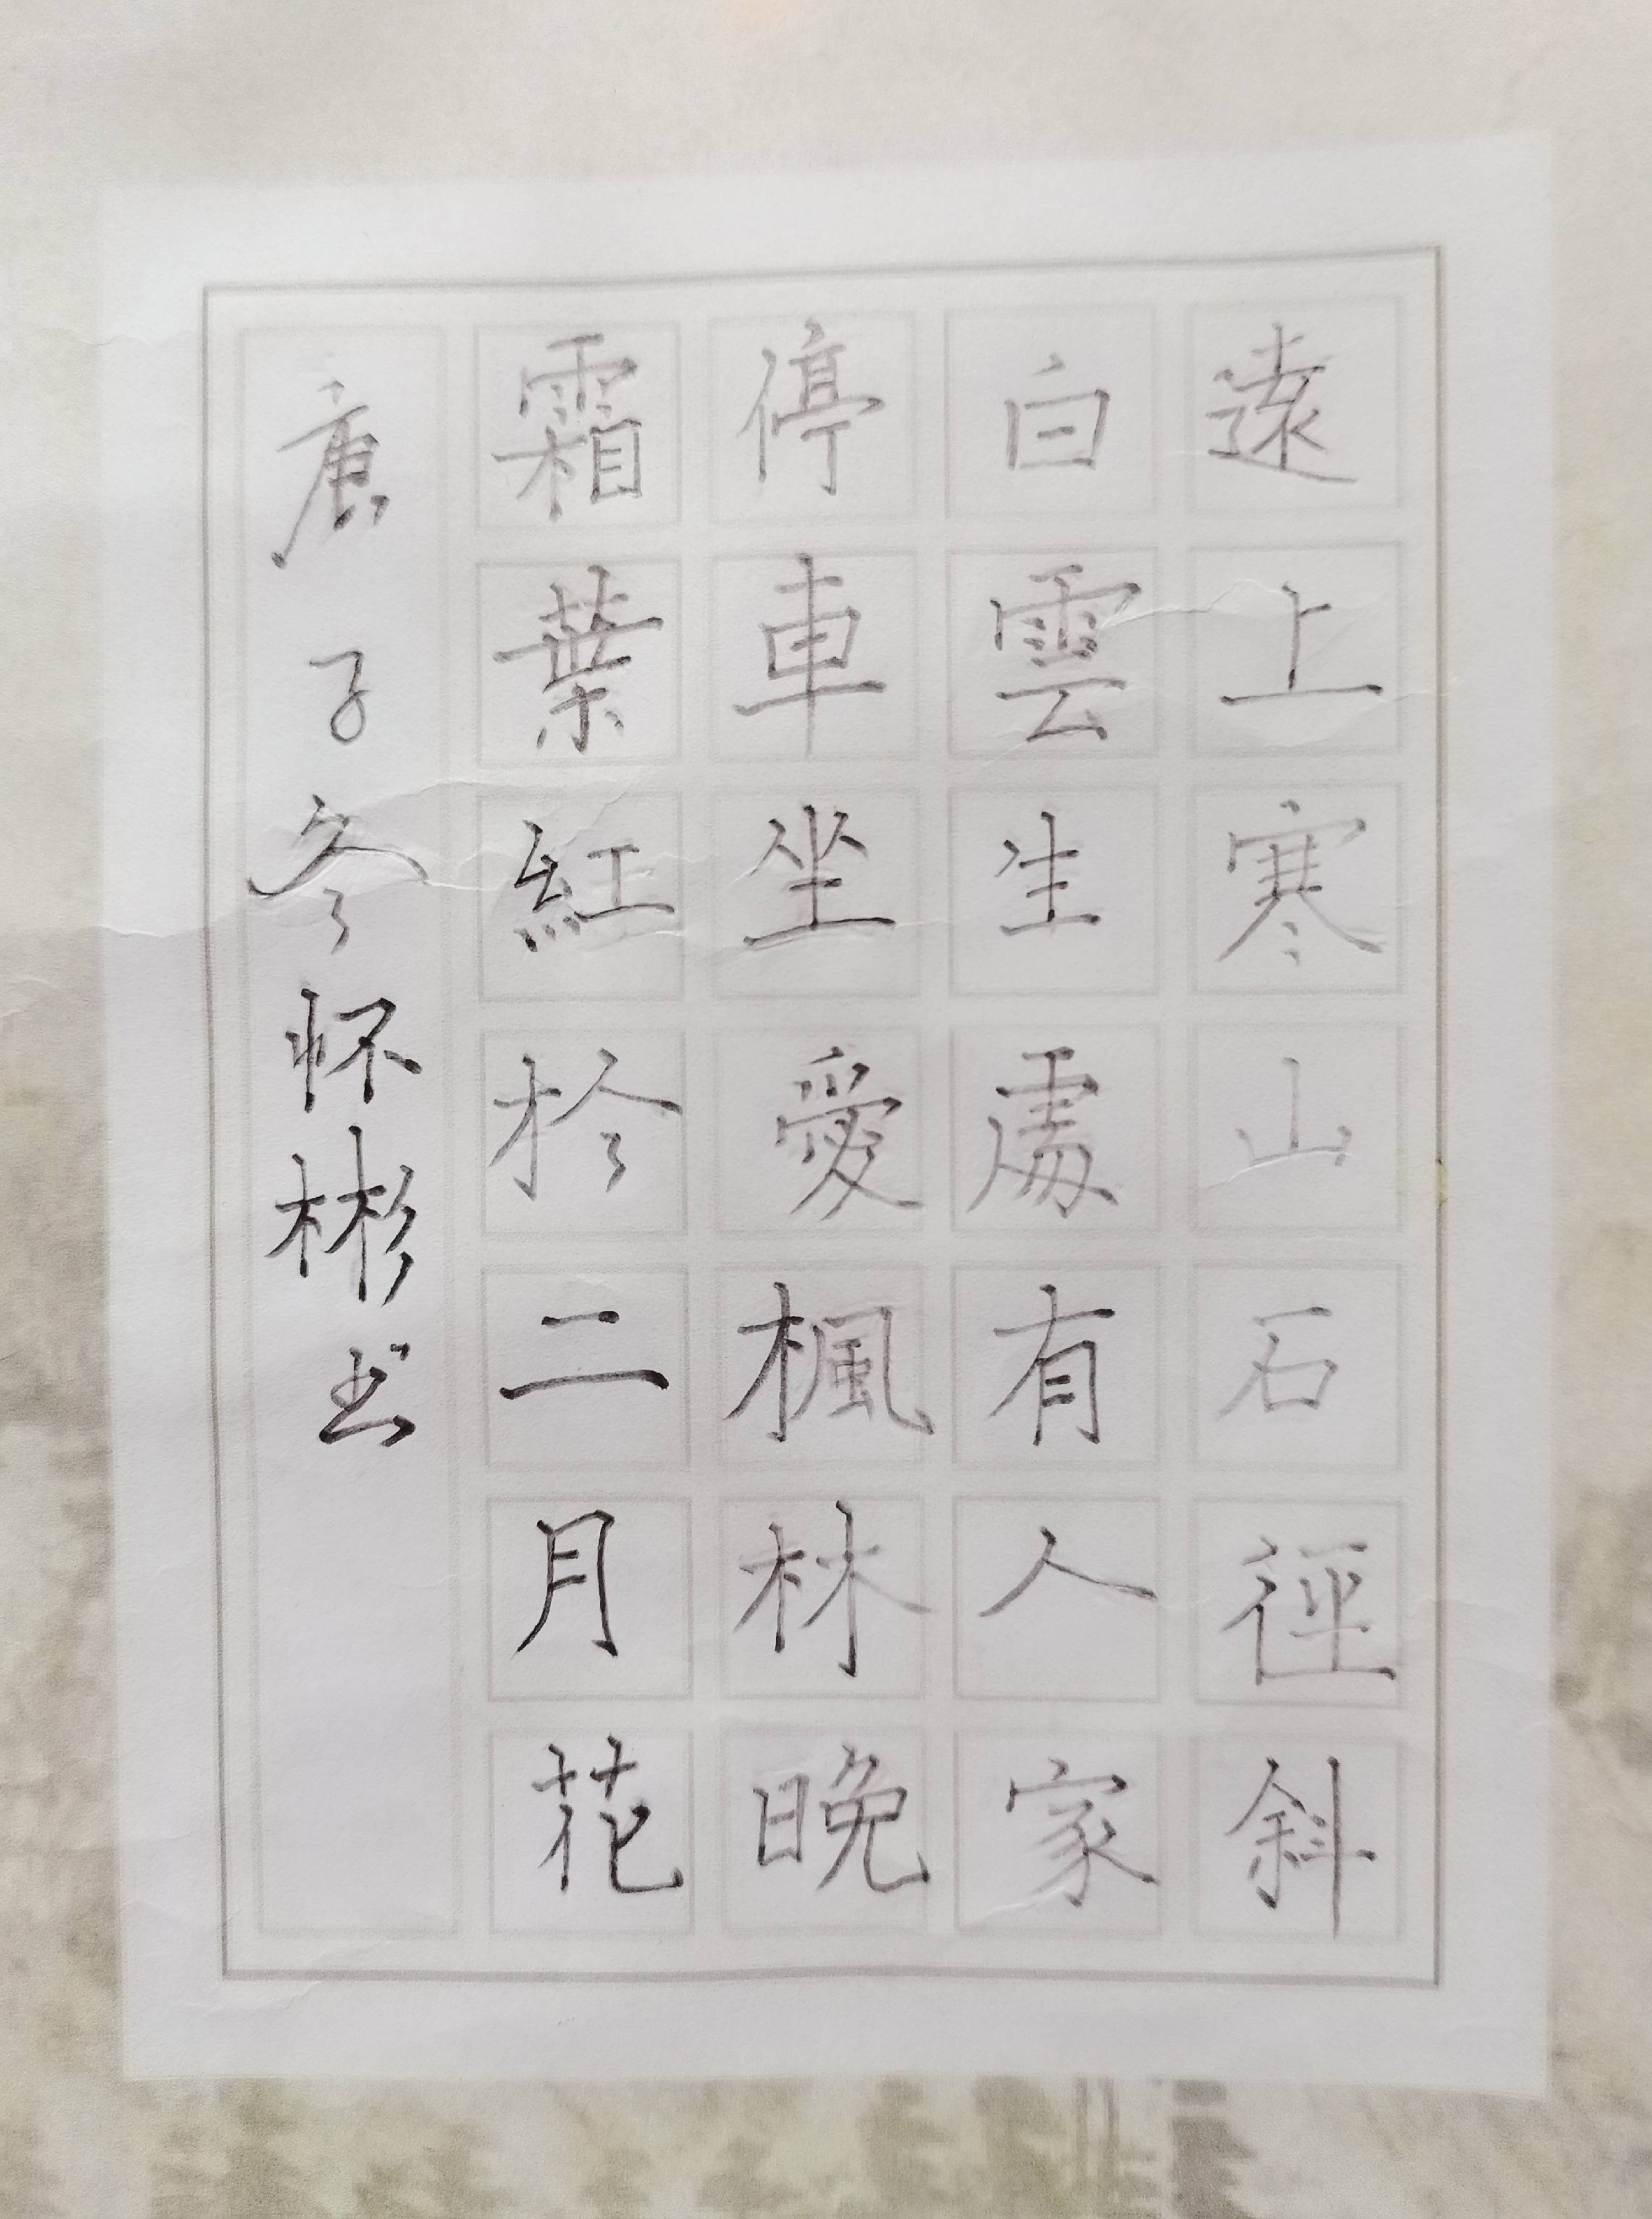 遠上寒山石徑斜
白雲生處有人家
停車坐愛楓林晚
霜葉紅於二月花
庚子冬怀彬书